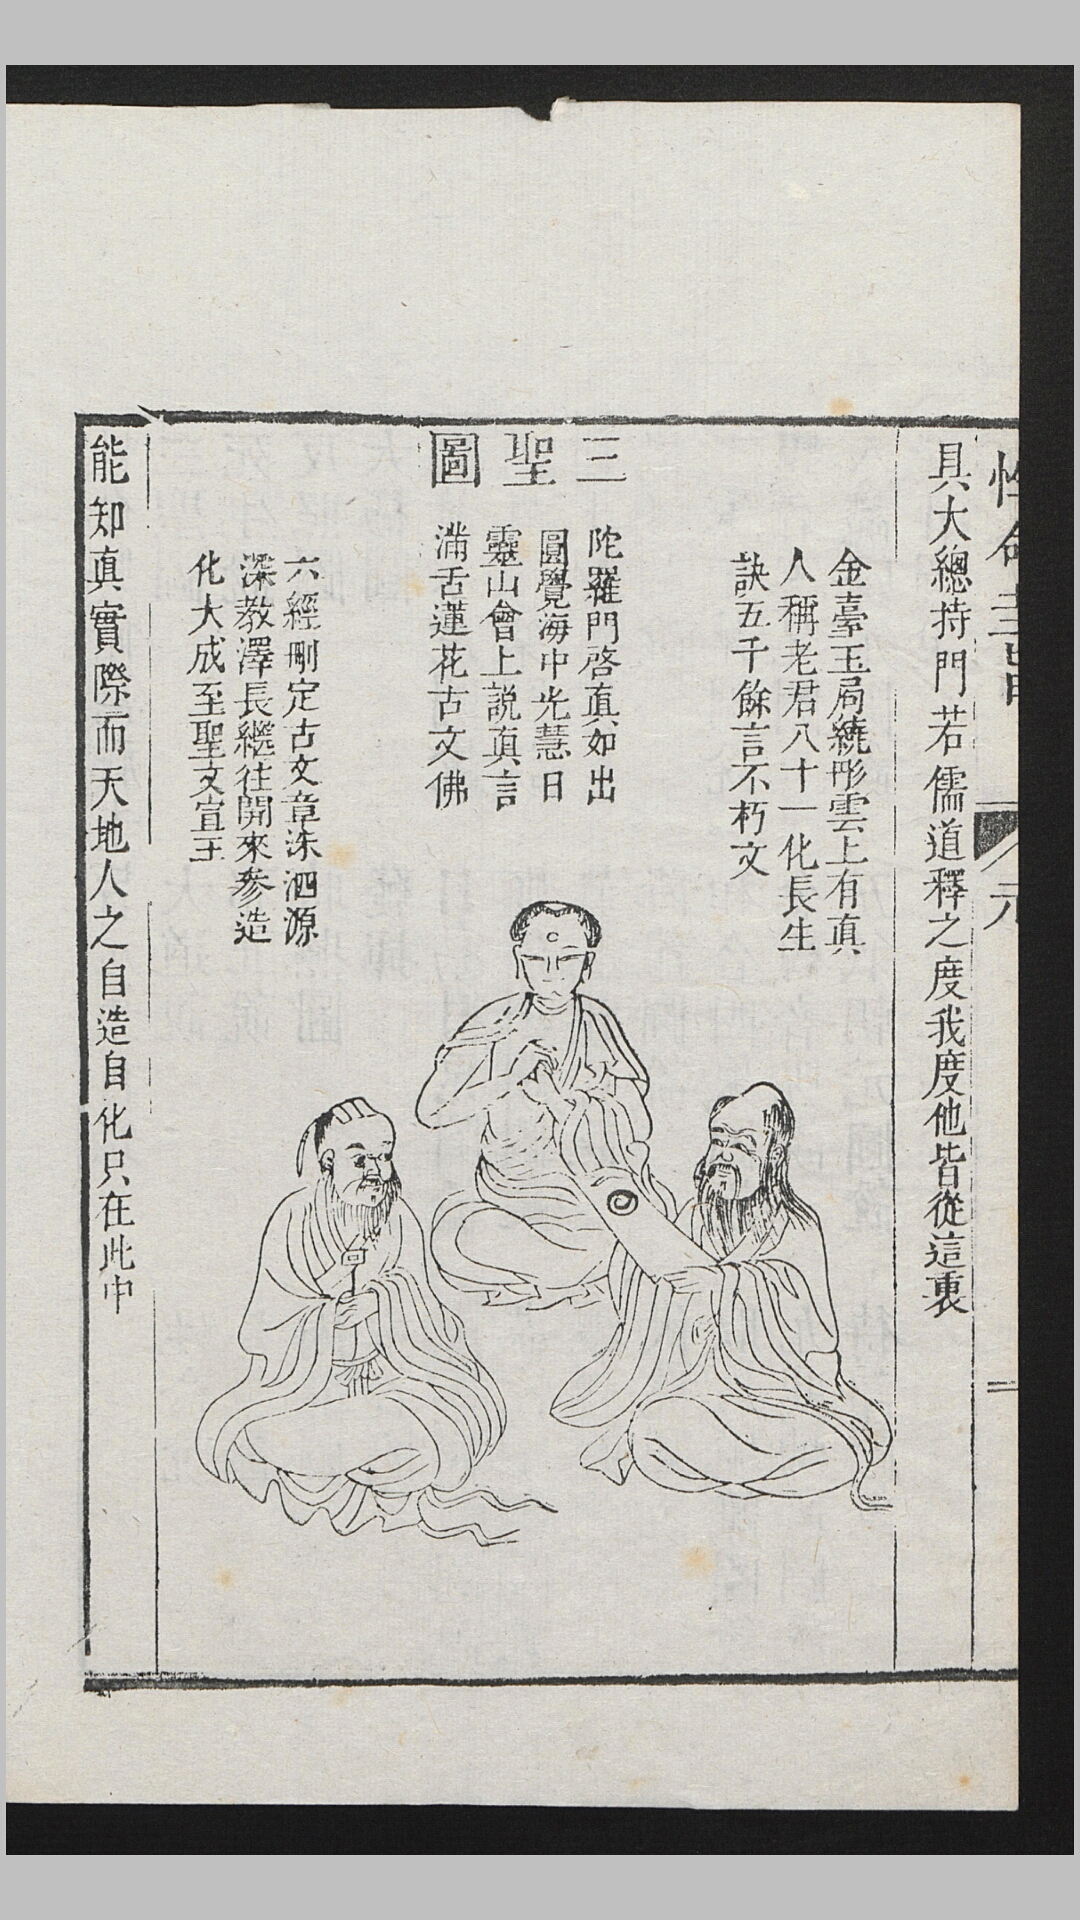 性命圭旨
元
具大總持門若儒道釋之度我度他皆從這裏
三聖圖
金臺玉局繞彤雲上有真
人稱老君八十一化長生
訣五千餘言不朽文
陀羅門啓真如出
圓覺海中光慧日
靈山會上説真言
滿舌蓮花古文佛
六經刪定古文章洙泗源
深教澤長繼往開來參造
化大成至聖文宣王
能知真實際而天地人之自造自化只在此中